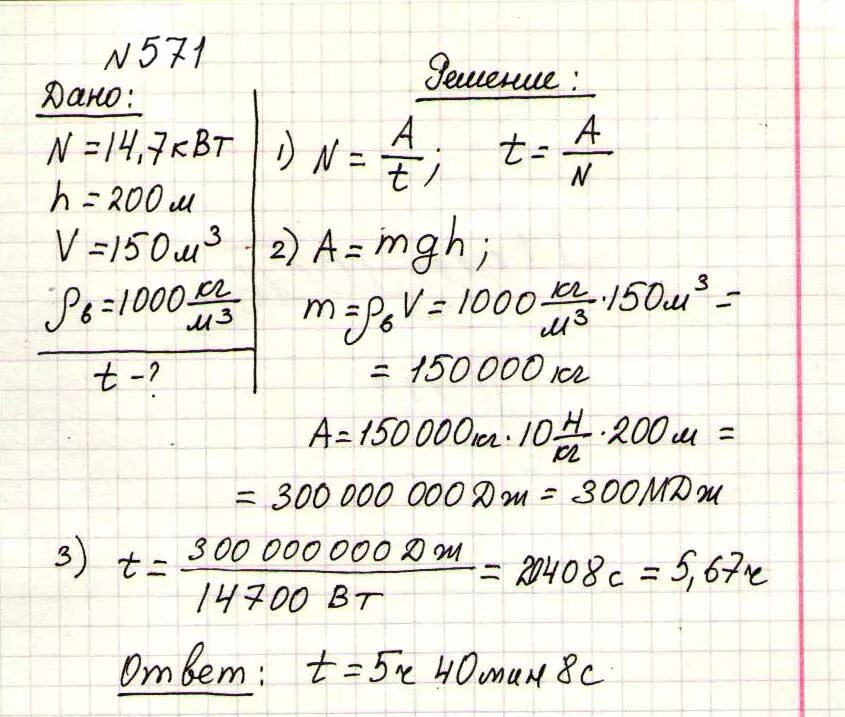 N 571
Дано:
N = 14,7 кВт
h = 200 м
V = 150 м³
ρв = 1000 кг/м³
t - ?
Решение:
1) N = A/t; t = A/N
2) A = mgh;
m = ρв V = 1000 кг/м³ · 150 м³ =
= 150 000 кг
A = 150 000 кг · 10 Н/кг · 200 м =
= 300 000 000 Дж = 300 МДж
3) t = 300 000 000 Дж / 14700 Вт = 20408 с = 5,67 ч
Ответ: t = 5ч 40 мин 8с